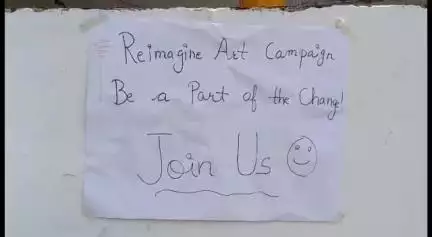 Reimagine Art Campaign
Be a Part of the Change!
Join Us